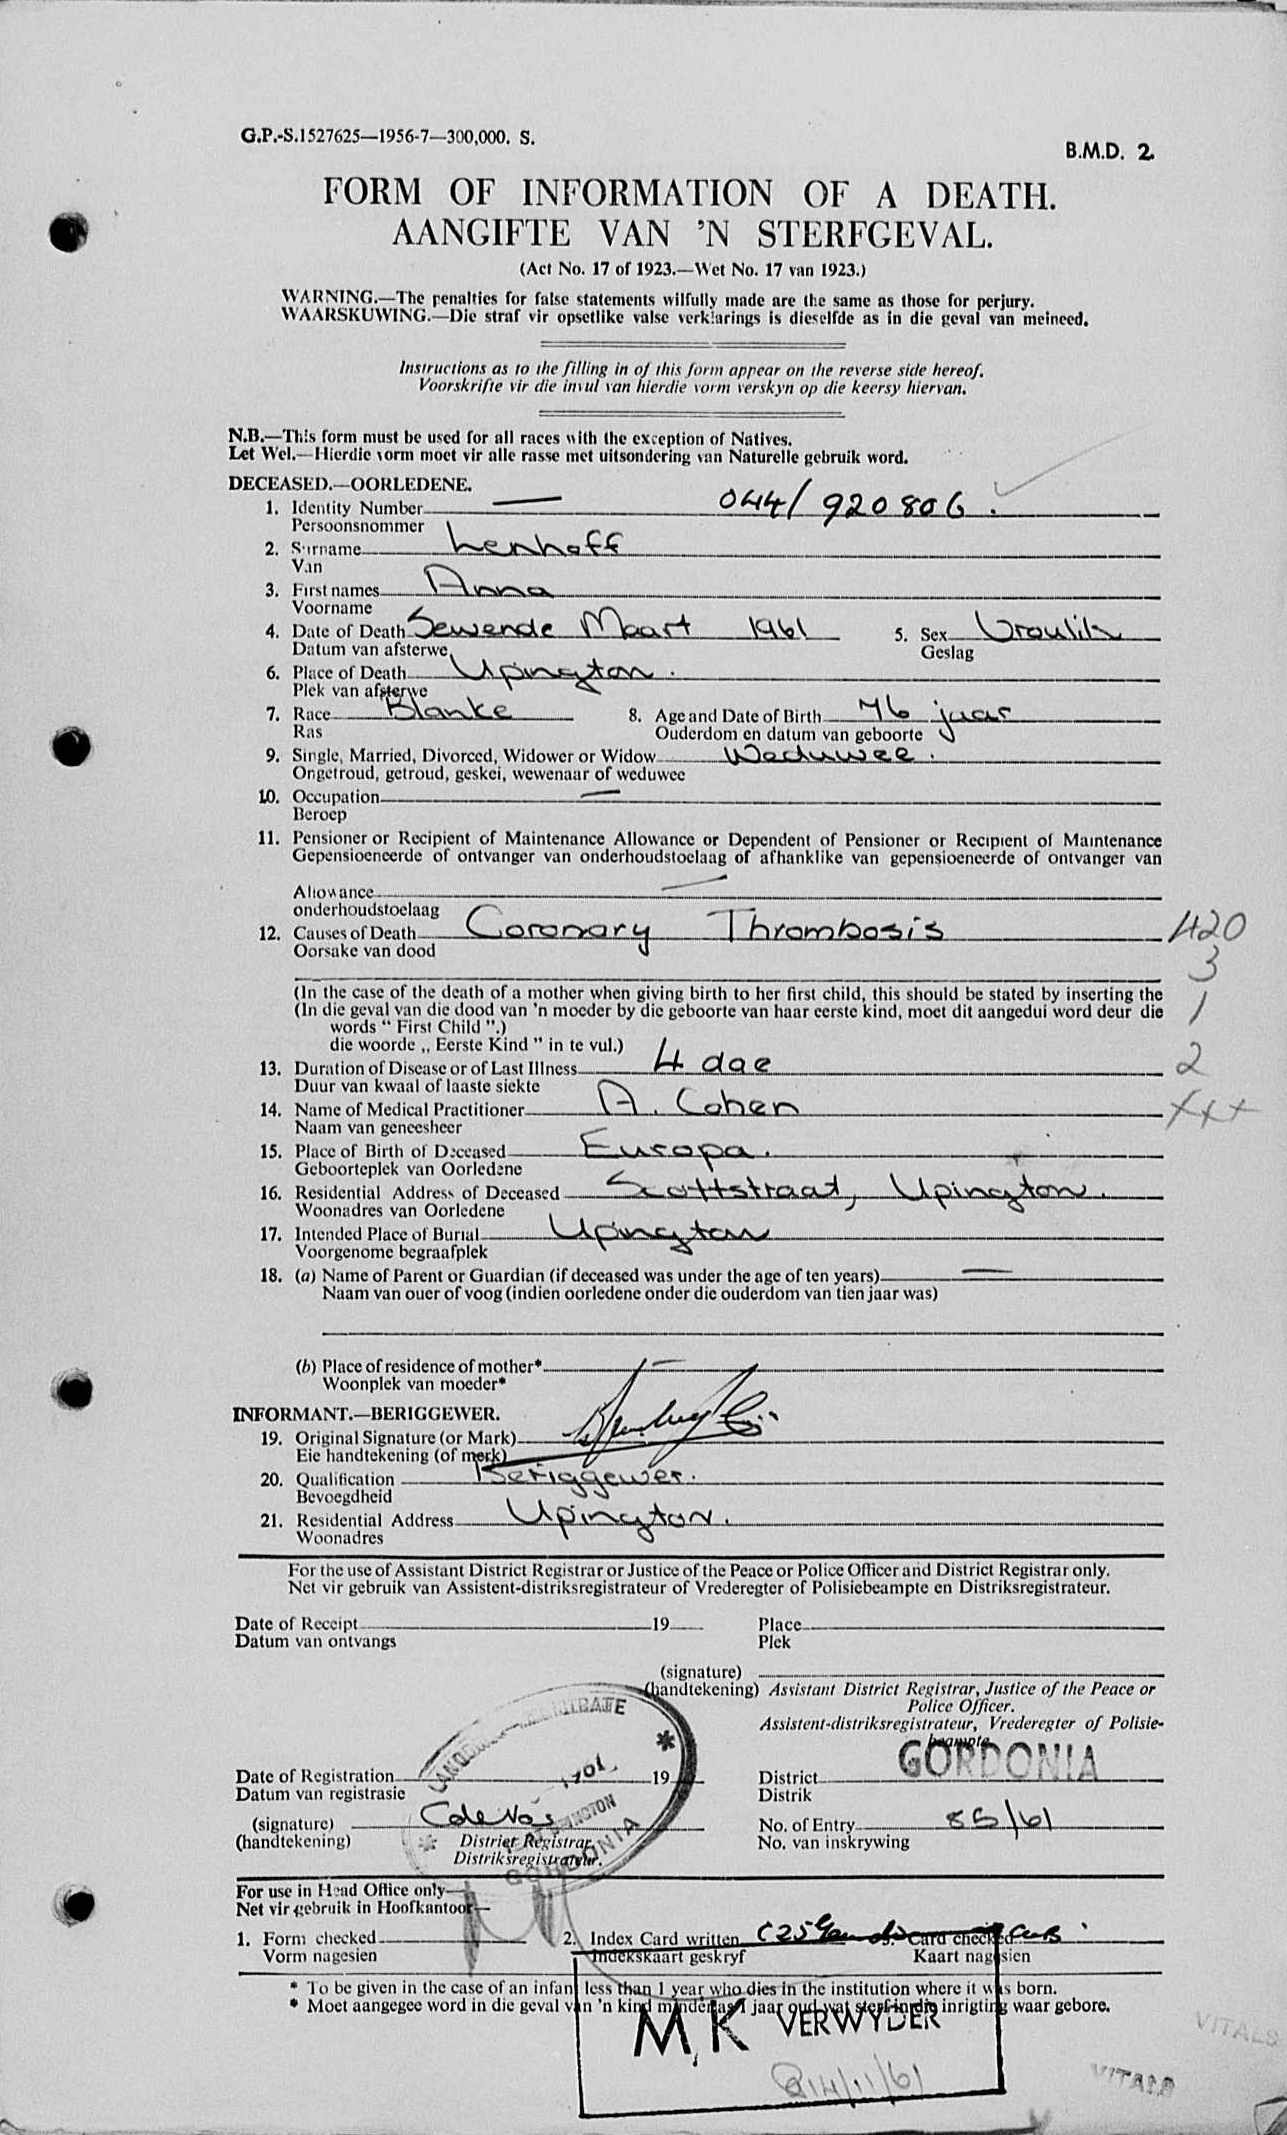 G.P.-S.1527625—1956-7—300,000. S.
B.M.D. 2
FORM OF INFORMATION OF A DEATH.
AANGIFTE VAN 'N STERFGEVAL.
(Act No. 17 of 1923.—Wet No. 17 van 1923.)
WARNING.—The penalties for false statements wilfully made are the same as those for perjury.
WAARSKUWING.—Die straf vir opsetlike valse verklarings is dieselfde as in die geval van meineed.
Instructions as to the filling in of this form appear on the reverse side hereof.
Voorskrifte vir die invul van hierdie vorm verskyn op die keersy hiervan.
N.B.—This form must be used for all races with the exception of Natives.
Let Wel.—Hierdie vorm moet vir alle rasse met uitsondering van Naturelle gebruik word.
DECEASED.—OORLEDENE.
1. Identity Number — 044/920806.
Persoonsnommer
2. Surname Lenhoff
Van
3. First names Anna
Voorname
4. Date of Death Sewende Maart 1961 5. Sex Vroulik
Datum van afsterwe Geslag
6. Place of Death Upington.
Plek van afsterwe
7. Race Blanke 8. Age and Date of Birth 76 jaar
Ras Ouderdom en datum van geboorte
9. Single, Married, Divorced, Widower or Widow Weduwee.
Ongetroud, getroud, geskei, wewenaar of weduwee
10. Occupation —
Beroep
11. Pensioner or Recipient of Maintenance Allowance or Dependent of Pensioner or Recipient of Maintenance
Gepensioeneerde of ontvanger van onderhoudstoelaag of afhanklike van gepensioeneerde of ontvanger van
Allowance —
onderhoudstoelaag
12. Causes of Death Coronary Thrombosis 420
Oorsake van dood
3
(In the case of the death of a mother when giving birth to her first child, this should be stated by inserting the
(In die geval van die dood van 'n moeder by die geboorte van haar eerste kind, moet dit aangedui word deur die 1
words " First Child ".)
die woorde „ Eerste Kind " in te vul.)
13. Duration of Disease or of Last Illness 4 dae 2
Duur van kwaal of laaste siekte
14. Name of Medical Practitioner A. Cohen XXX
Naam van geneesheer
15. Place of Birth of Deceased Europa.
Geboorteplek van Oorledene
16. Residential Address of Deceased Scottstraat, Upington.
Woonadres van Oorledene
17. Intended Place of Burial Upington
Voorgenome begraafplek
18. (a) Name of Parent or Guardian (if deceased was under the age of ten years) —
Naam van ouer of voog (indien oorledene onder die ouderdom van tien jaar was)
(b) Place of residence of mother* —
Woonplek van moeder*
INFORMANT.—BERIGGEWER.
19. Original Signature (or Mark)
Eie handtekening (of merk)
20. Qualification Beriggewer.
Bevoegdheid
21. Residential Address Upington.
Woonadres
For the use of Assistant District Registrar or Justice of the Peace or Police Officer and District Registrar only.
Net vir gebruik van Assistent-distriksregistrateur of Vrederegter of Polisiebeampte en Distriksregistrateur.
Date of Receipt 19 Place
Datum van ontvangs Plek
(signature)
(handtekening) Assistant District Registrar, Justice of the Peace or
Police Officer.
Assistent-distriksregistrateur, Vrederegter of Polisie-
beampte
GORDONIA
Date of Registration 19 District
Datum van registrasie Distrik
(signature) C de Vos No. of Entry 85/61
(handtekening) District Registrar. No. van inskrywing
Distriksregistrateur.
UPINGTON
GORDONIA
For use in Head Office only—
Net vir gebruik in Hoofkantoor—
1. Form checked 2. Index Card written 3. Card checked
Vorm nagesien Indekskaart geskryf Kaart nagesien
* To be given in the case of an infant less than 1 year who dies in the institution where it was born.
* Moet aangegee word in die geval van 'n kind minder as 1 jaar oud wat sterf in die inrigting waar gebore.
M.K VERWYDER
14/11/61
VITALS
VITALS